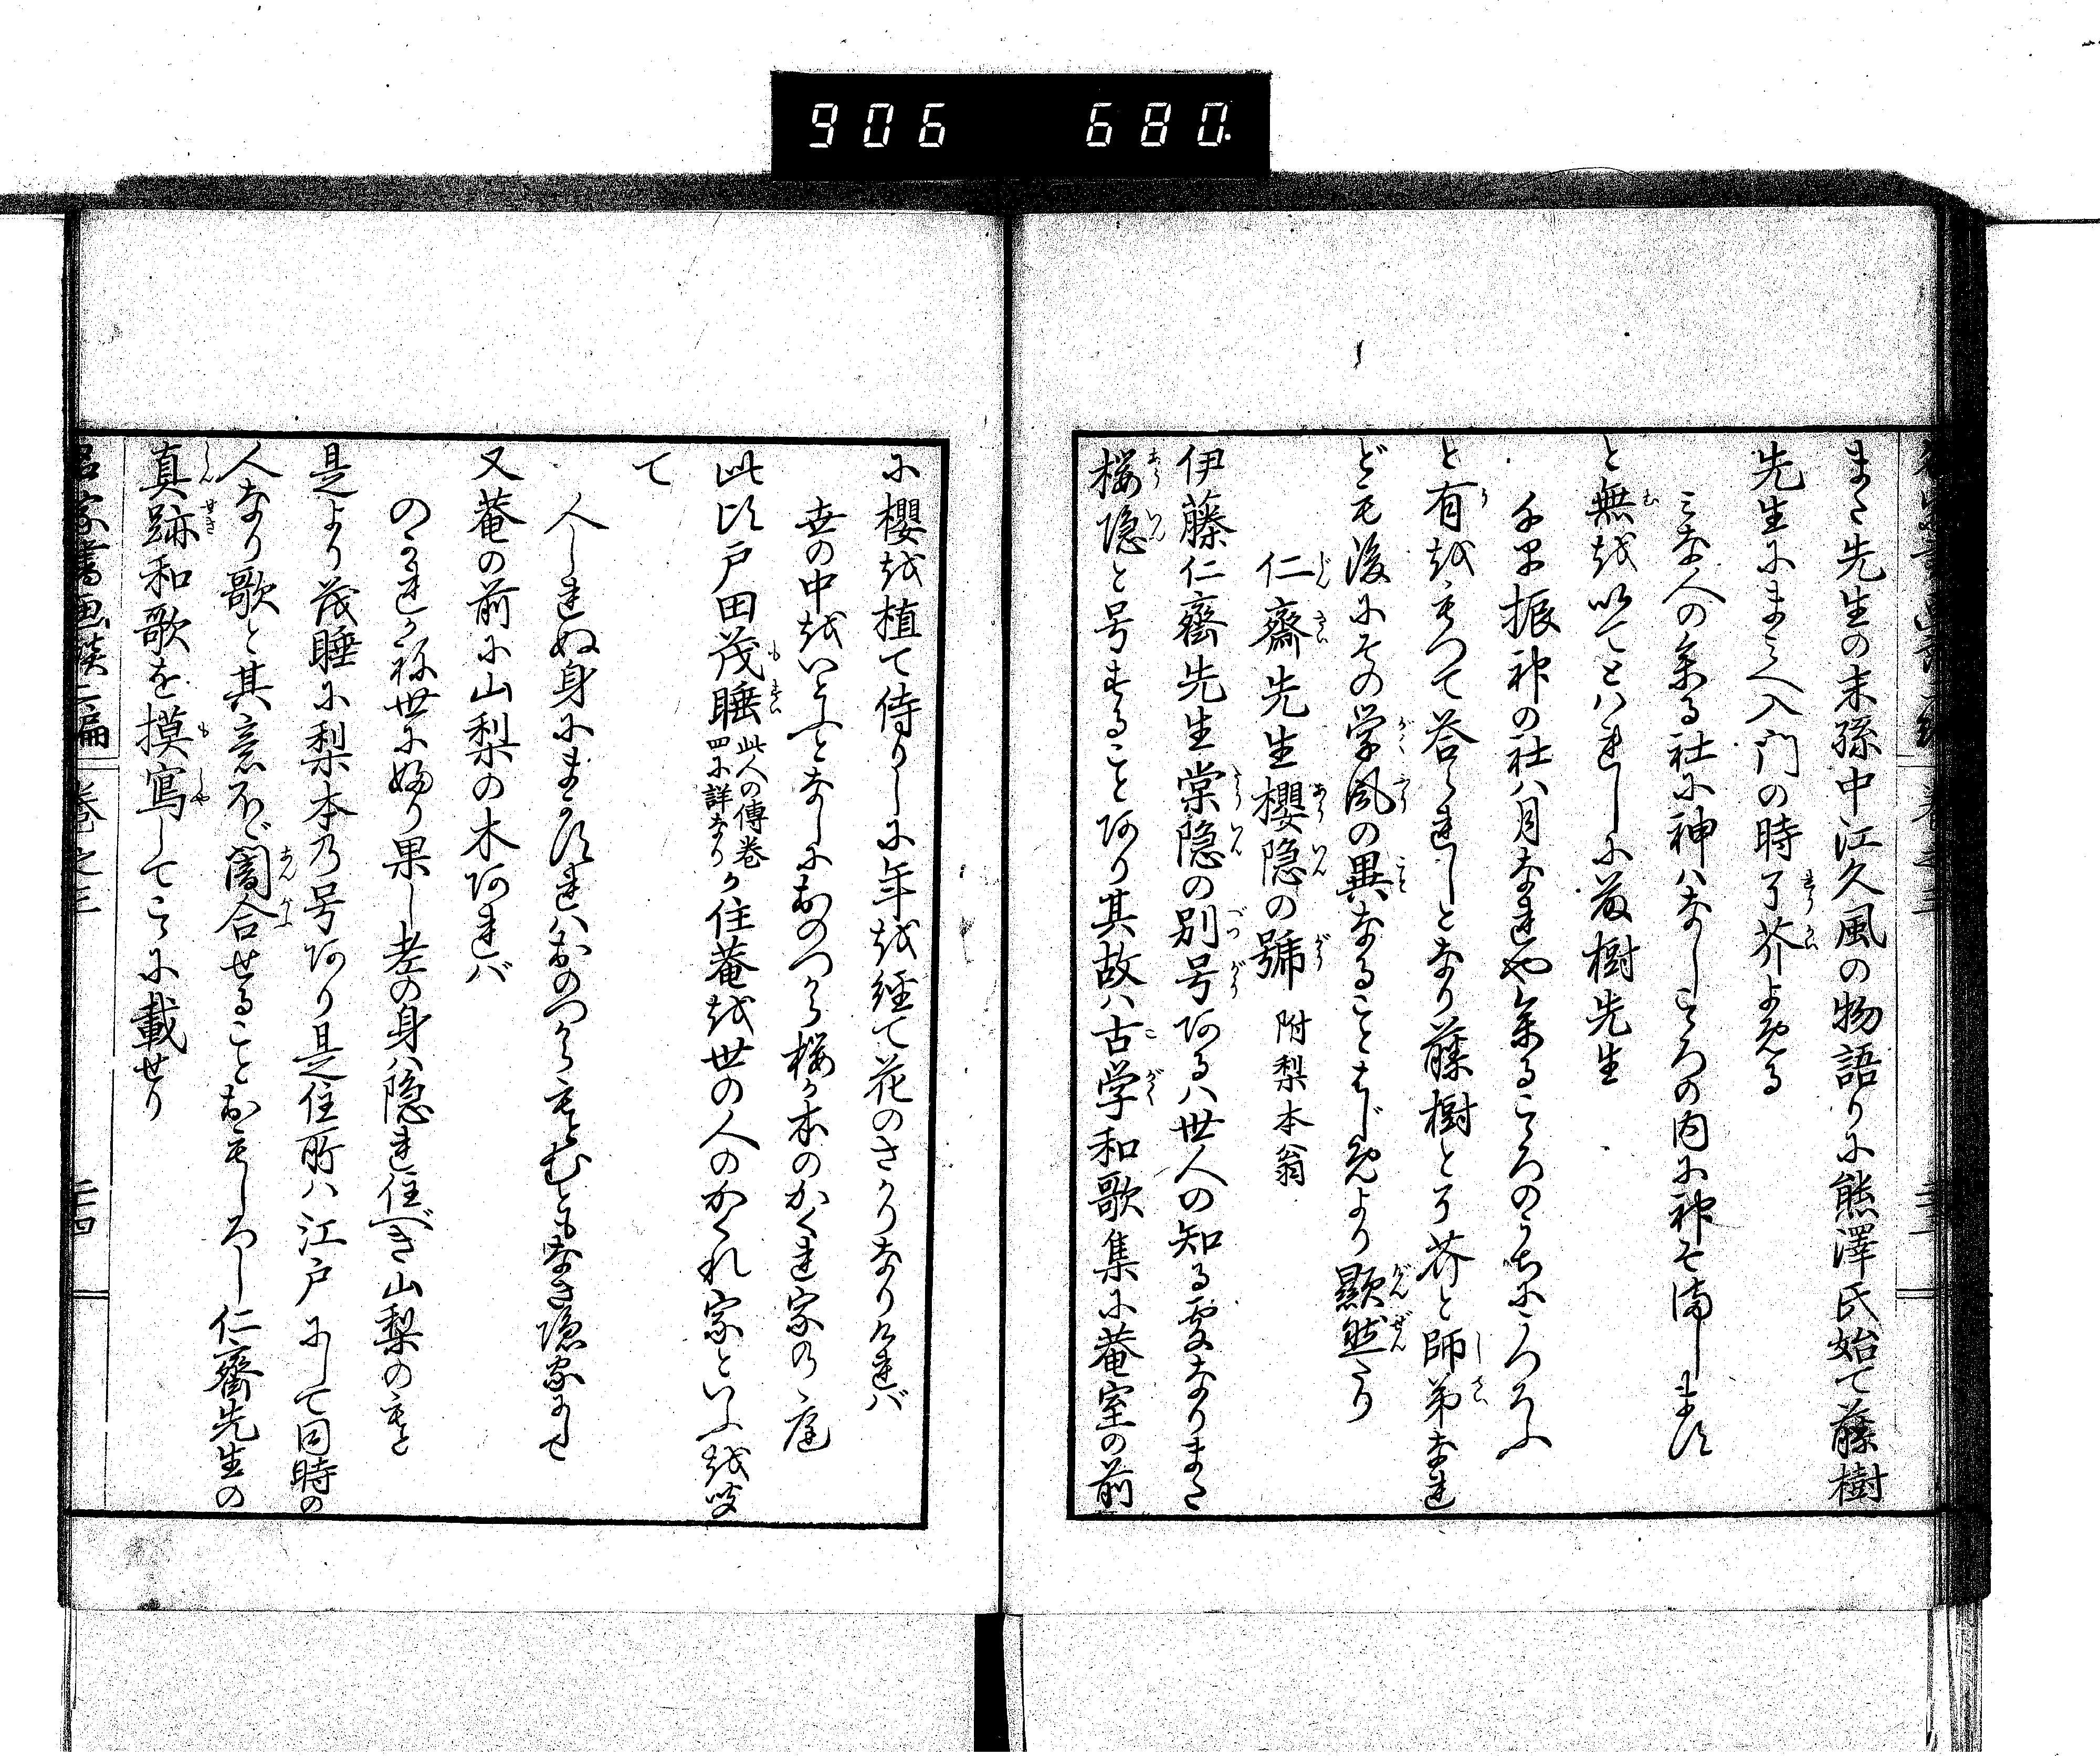 906 680.
また先生の末孫中江久風の物語りに熊澤氏始て藤樹
先生にまみへ入門の時了芥よめる
みな人の参る社に神ハなしこゝろの内に神そ満します
と無を以てとハれしに藤樹先生
千早振神の社ハ月なれや参るこゝろのうちにうつろふ
と有をもつて答られしとなり藤樹と了芥と師弟なれ
ども後にその学風の異なることはじめより顕然たり
仁齋先生櫻隠の號 附梨本翁
伊藤仁齋先生棠隠の別号ある八世人の知る處なりまた
桜隠と号すること阿り其故ハ古学和歌集に菴室の前
に櫻を植て侍りしに年を経て花のさかりなりけれバ
世の中をいとふとなしにおのつから桜か本のかくれ家の庭
此比戸田茂睡 此人の傳巻四に詳なり か住菴を世の人のかくれ家といふを聞
て
人しれぬ身にしまかすれハおのつからもとむともなき隠家にして
又菴の前に山梨の木あれバ
のかれかね世にふり果し老の身ハ隠れ住べき山梨のもと
是より茂睡に梨本の号あり是住所ハ江戸にして同時の
人なり歌と其意不闇合せることおもしろし仁齋先生の
真跡和歌を摸寫してこゝに載せり
名家書画談二編 巻之三 二十四